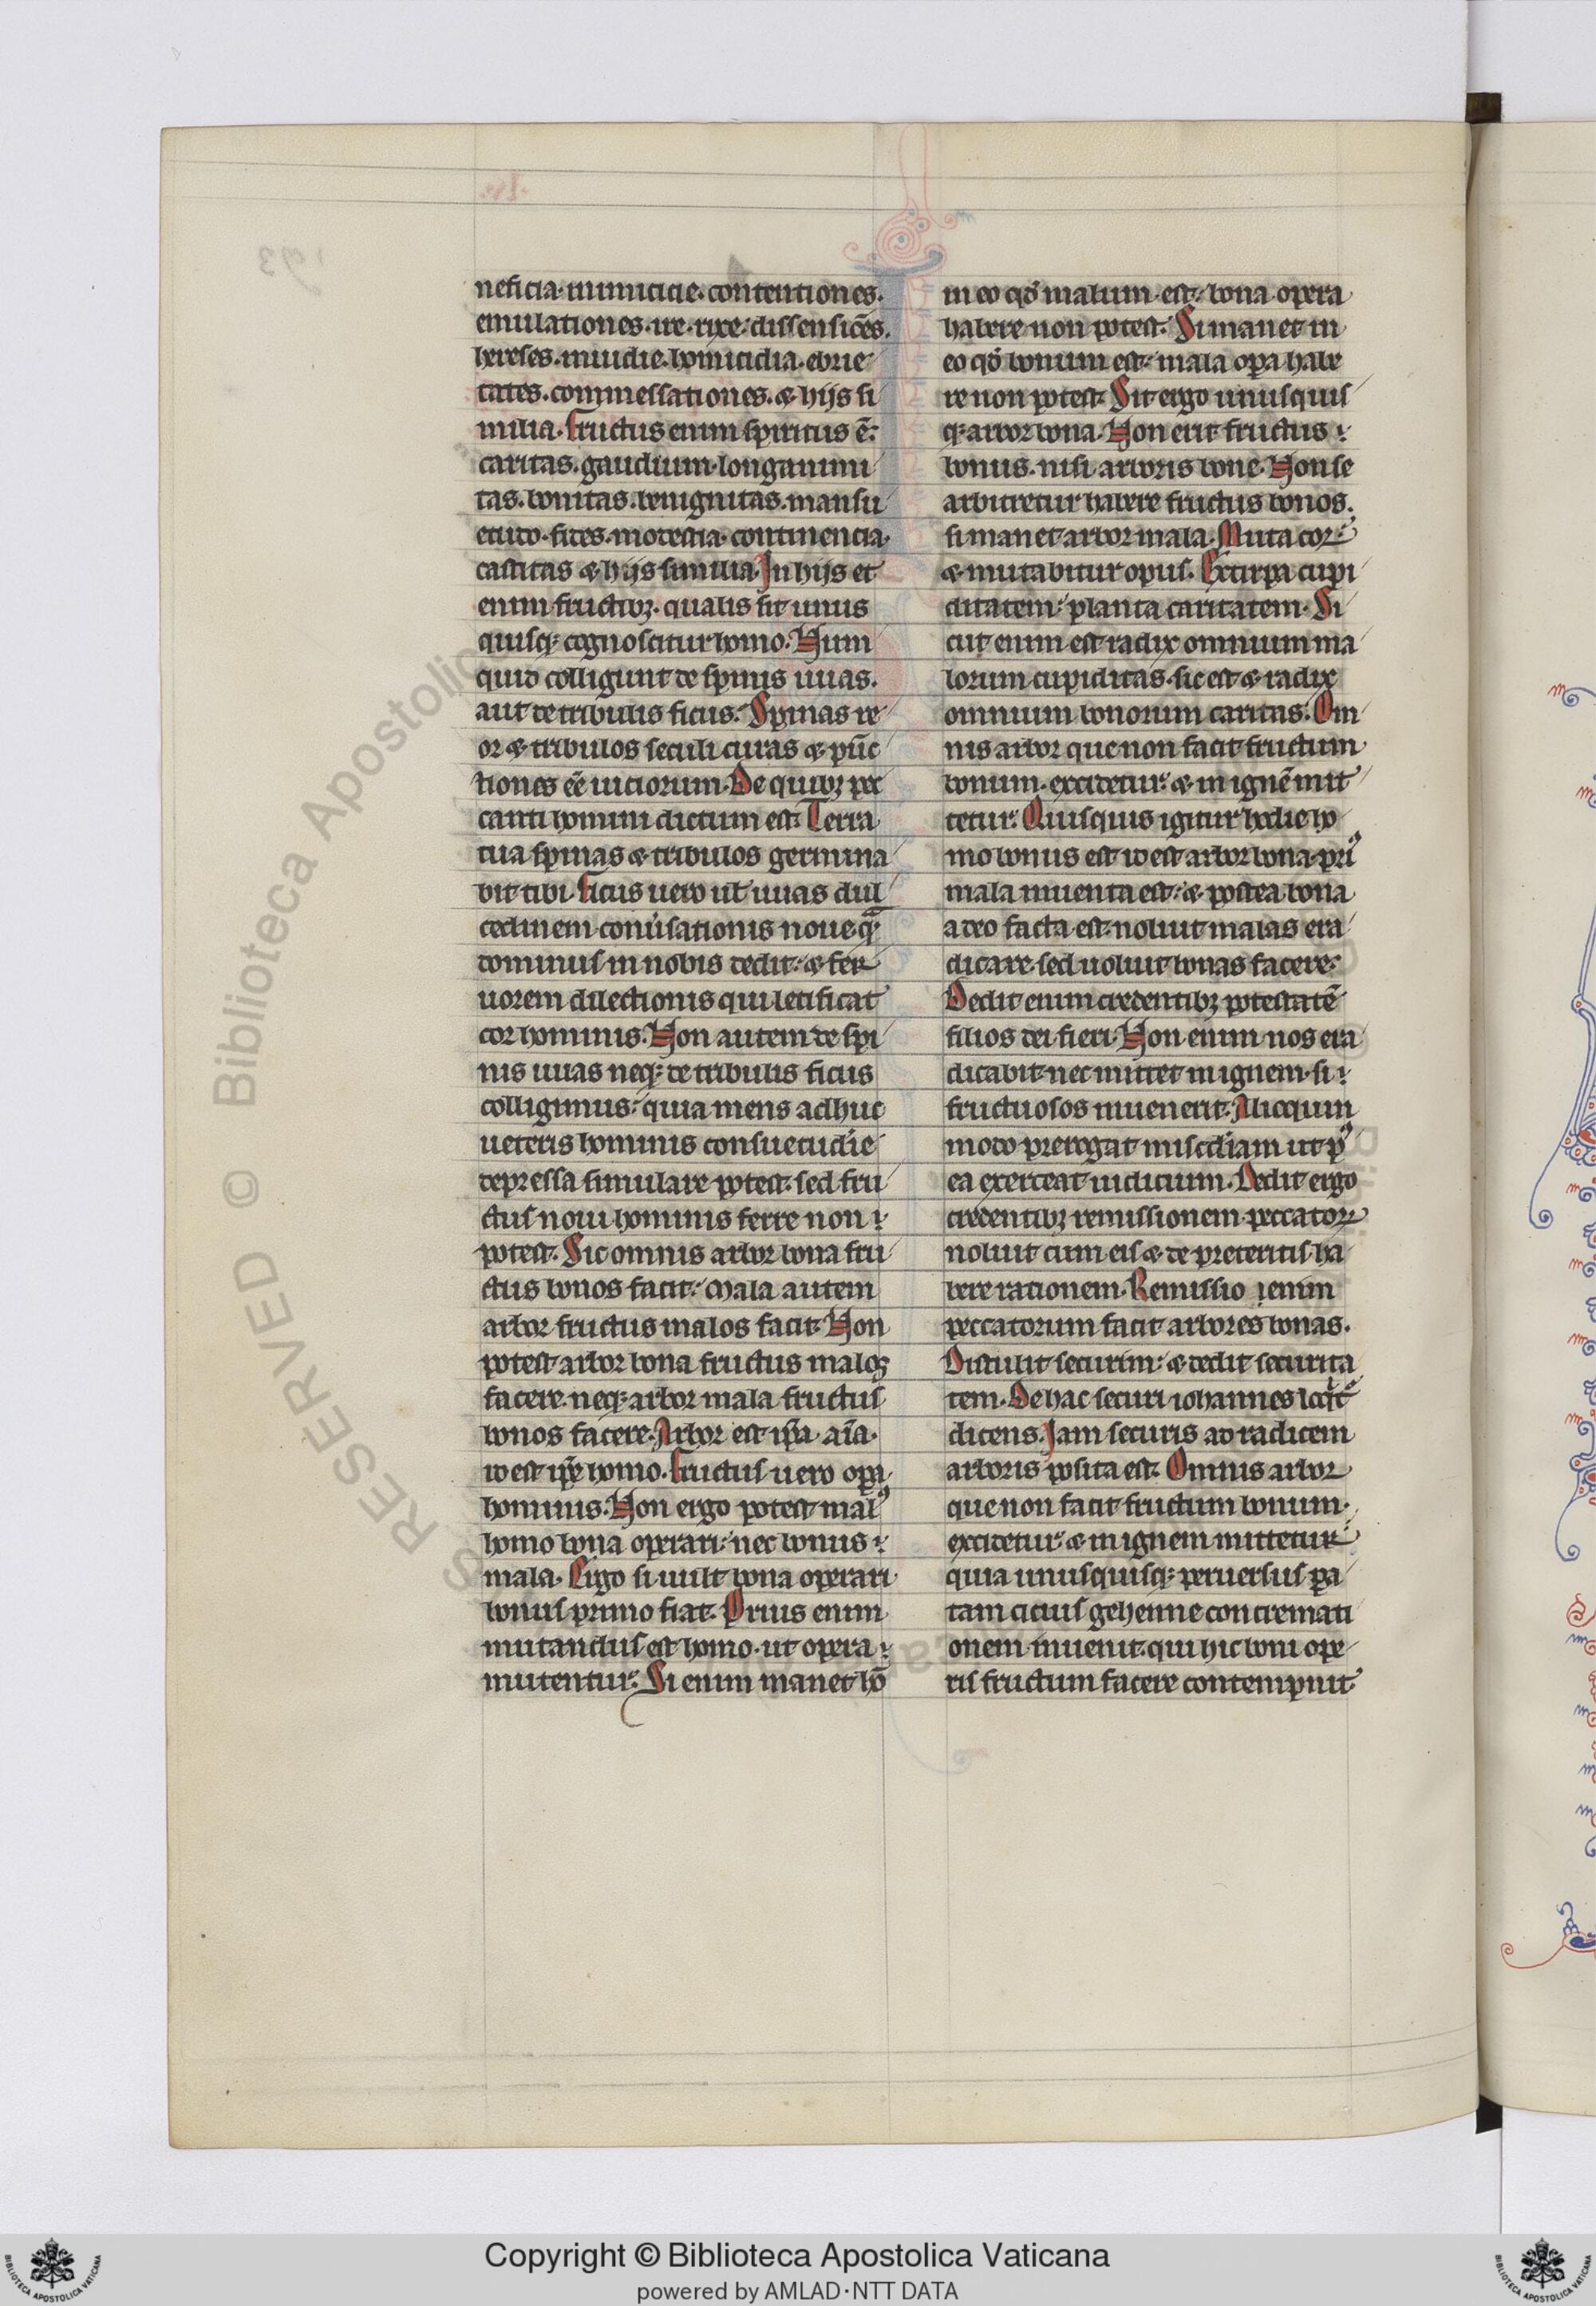 neficia. inimicicie. contentiones.
emulationes. ire. rixe. dissensiões.
hereses. inuidie. homicidia. ebrie
tates. commessationes. & hijs si
milia. Fructus enim spiritus ē.
caritas. gaudium. longanimi
tas. bonitas. benignitas. mansu
etudo. fides. modestia. continencia.
castitas & hijs similia. In hijs et
enim fructibꝫ. qualis sit unus
quisqꝫ cognoscitur homo. Num
quid colligunt de spinis uuas.
aut de tribulis ficus. Spinas re
or & tribulos seculi curas & pūc
tiones eē uiciorum. De quibꝫ pec
canti homini dictum est. Terra
tua spinas & tribulos germina
bit tibi. Ficus uero ut uuas dul
cedinem conu̾sationis noue qᵃ
dominus in nobis dedit. & fer
uorem dilectionis qui letificat
cor hominis. Non autem de spi
nis uuas neqꝫ de tribulis ficus
colligimus. quia mens adhuc
ueteris hominis consuetudīe
depressa simulare potest. sed fru
ctus noui hominis ferre non
potest. Sic omnis arbor bona fru
ctus bonos facit. Mala autem
arbor fructus malos facit. Non
potest arbor bona fructus malos
facere. neqꝫ arbor mala fructus
bonos facere. Arbor est ip̄a aīa.
id est ip̄e homo. Fructus uero oꝑa
hominis. Non ergo potest malꝰ
homo bona operari. nec bonus
mala. Ergo si uult bona operari
bonus primo fiat. Prius enim
mutandus est homo. ut opera
mutentur. Si enim manet hō
in eo qđ malum est. bona opera
habere non potest. Si manet in
eo qđ bonum est. mala oꝑa habe
re non potest. Sit ergo unusquis
qꝫ arbor bona. Non erit fructus
bonus. nisi arboris bone. Non se
arbitretur habere fructus bonos.
si manet arbor mala. Muta cor.
& mutabitur opus. Extirpa cupi
ditatem. planta caritatem. Si
cut enim est radix omnium ma
lorum cupiditas. sic est & radix
omnium bonorum caritas. Om
nis arbor que non facit fructum
bonum. excidetur. & in ignē mit
tetur. Quisquis igitur hodie ho
mo bonus est id est arbor bona. priᵒ
mala inuenta est. & postea bona
a deo facta est. noluit malas era
dicare. sed uoluit bonas facere.
Dedit enim credentibꝫ potestatē
filios dei fieri. Non enim nos era
dicabit. nec mittet in ignem. si
fructuosos inuenerit. Alioquin
modo prerogat misc̄diam ut pᵒ
ea exerceat iudicium. Dedit ergo
credentibꝫ remissionem peccatoꝝ
noluit cum eis & de preteritis ha
bere rationem. Remissio enim
peccatorum facit arbores bonas.
Distulit securim. & dedit securita
tem. De hac securi iohannes loqͥt̾
dicens. Jam securis ad radicem
arboris posita est. Omnis arbor
que non facit fructum bonum.
excidetur. & in ignem mittetur.
quia unusquisqꝫ peruersus pa
tam cicius gehenne concremati
onem inuenit. qui hic boni ope
ris fructum facere contempnit.
RESERVED © Biblioteca Apostolica
Copyright © Biblioteca Apostolica Vaticana
powered by AMLAD·NTT DATA
BIBLIOTECA APOSTOLICA VATICANA
BIBLIOTECA APOSTOLICA VATICANA